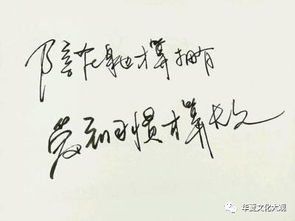 陪在身边才算拥有
爱到习惯才算长久
华夏文化大观